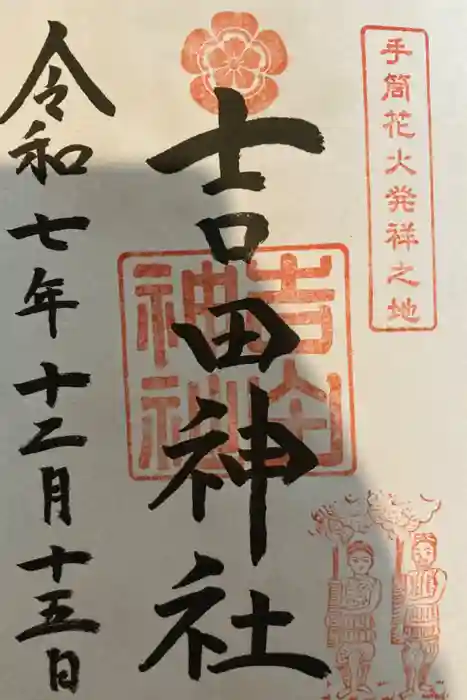 手筒花火発祥之地
吉田神社
吉田神社
令和七年十二月十五日